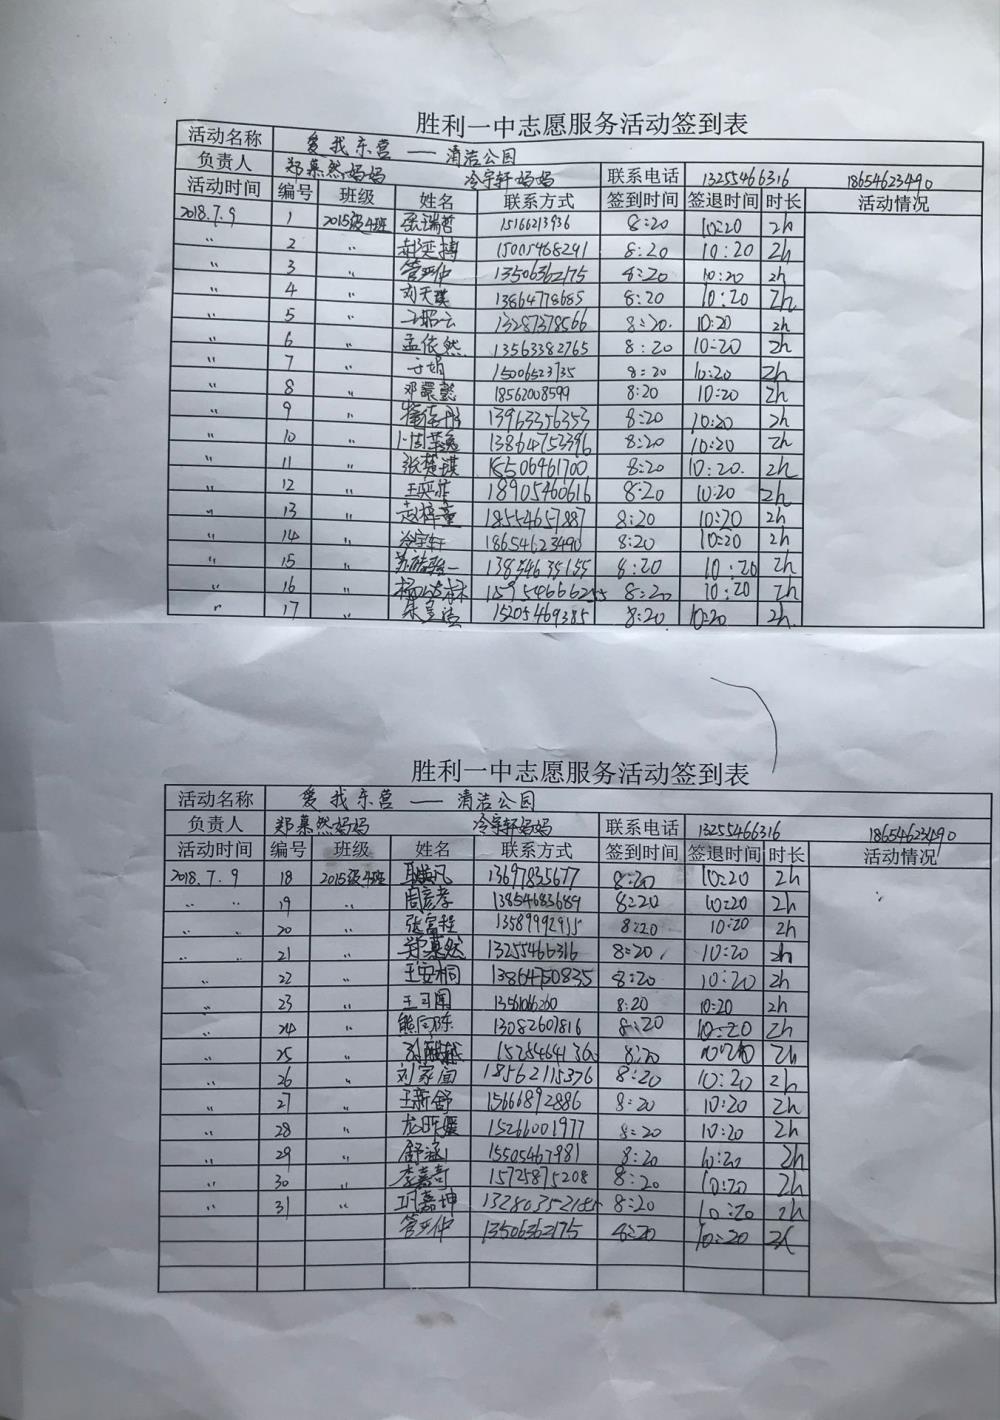 胜利一中志愿服务活动签到表
活动名称 爱我东营 —— 清洁公园
负责人 郑慕然妈妈 冷宇轩妈妈 联系电话 13255466316 18654623490
活动时间 编号 班级 姓名 联系方式 签到时间 签退时间 时长 活动情况
2018.7.9 1 2015级4班 张瑞哲 15166213936 8:20 10:20 2h
〃 2 〃 郝奕搏 15005468291 8:20 10:20 2h
〃 3 〃 13506362175 8:20 10:20 2h
〃 4 〃 刘天琪 13864778685 8:20 10:20 2h
〃 5 〃 13287378566 8:20 10:20 2h
〃 6 〃 孟依然 13563382765 8:20 10:20 2h
〃 7 〃 于娟 15006523735 8:20 10:20 2h
〃 8 〃 邓懿 18562008599 8:20 10:20 2h
〃 9 〃 13963356353 8:20 10:20 2h
〃 10 〃 13864752396 8:20 10:20 2h
〃 11 〃 张楚琪 18506461700 8:20 10:20 2h
〃 12 〃 18905460616 8:20 10:20 2h
〃 13 〃 赵梓童 18554657887 8:20 10:20 2h
〃 14 〃 冷宇轩 18654623490 8:20 10:20 2h
〃 15 〃 8:20 10:20 2h
〃 16 〃 8:20 10:20 2h
〃 17 〃 15205469385 8:20 10:20 2h
胜利一中志愿服务活动签到表
活动名称 爱我东营 —— 清洁公园
负责人 郑慕然妈妈 冷宇轩妈妈 联系电话 13255466316 18654623490
活动时间 编号 班级 姓名 联系方式 签到时间 签退时间 时长 活动情况
2018.7.9 18 2015级4班 13697835677 8:20 10:20 2h
〃 〃 19 〃 周彦孝 13854683689 8:20 10:20 2h
〃 〃 20 〃 张富程 13589992915 8:20 10:20 2h
〃 〃 21 〃 郑慕然 13255466316 8:20 10:20 2h
〃 22 〃 王安桐 13864750835 8:20 10:20 2h
〃 23 〃 8:20 10:20 2h
〃 24 〃 13082607816 8:20 10:20 2h
〃 25 〃 8:20 2h
〃 26 〃 刘家宜 18562115376 8:20 10:20 2h
〃 27 〃 王新舒 15666892886 8:20 10:20 2h
〃 28 〃 15266001977 8:20 10:20 2h
〃 29 〃 舒涵 15505467981 8:20 10:20 2h
〃 30 〃 李嘉奇 15725875208 8:20 10:20 2h
〃 31 〃 巩嘉坤 8:20 10:20 2h
13506362175 8:20 10:20 2h